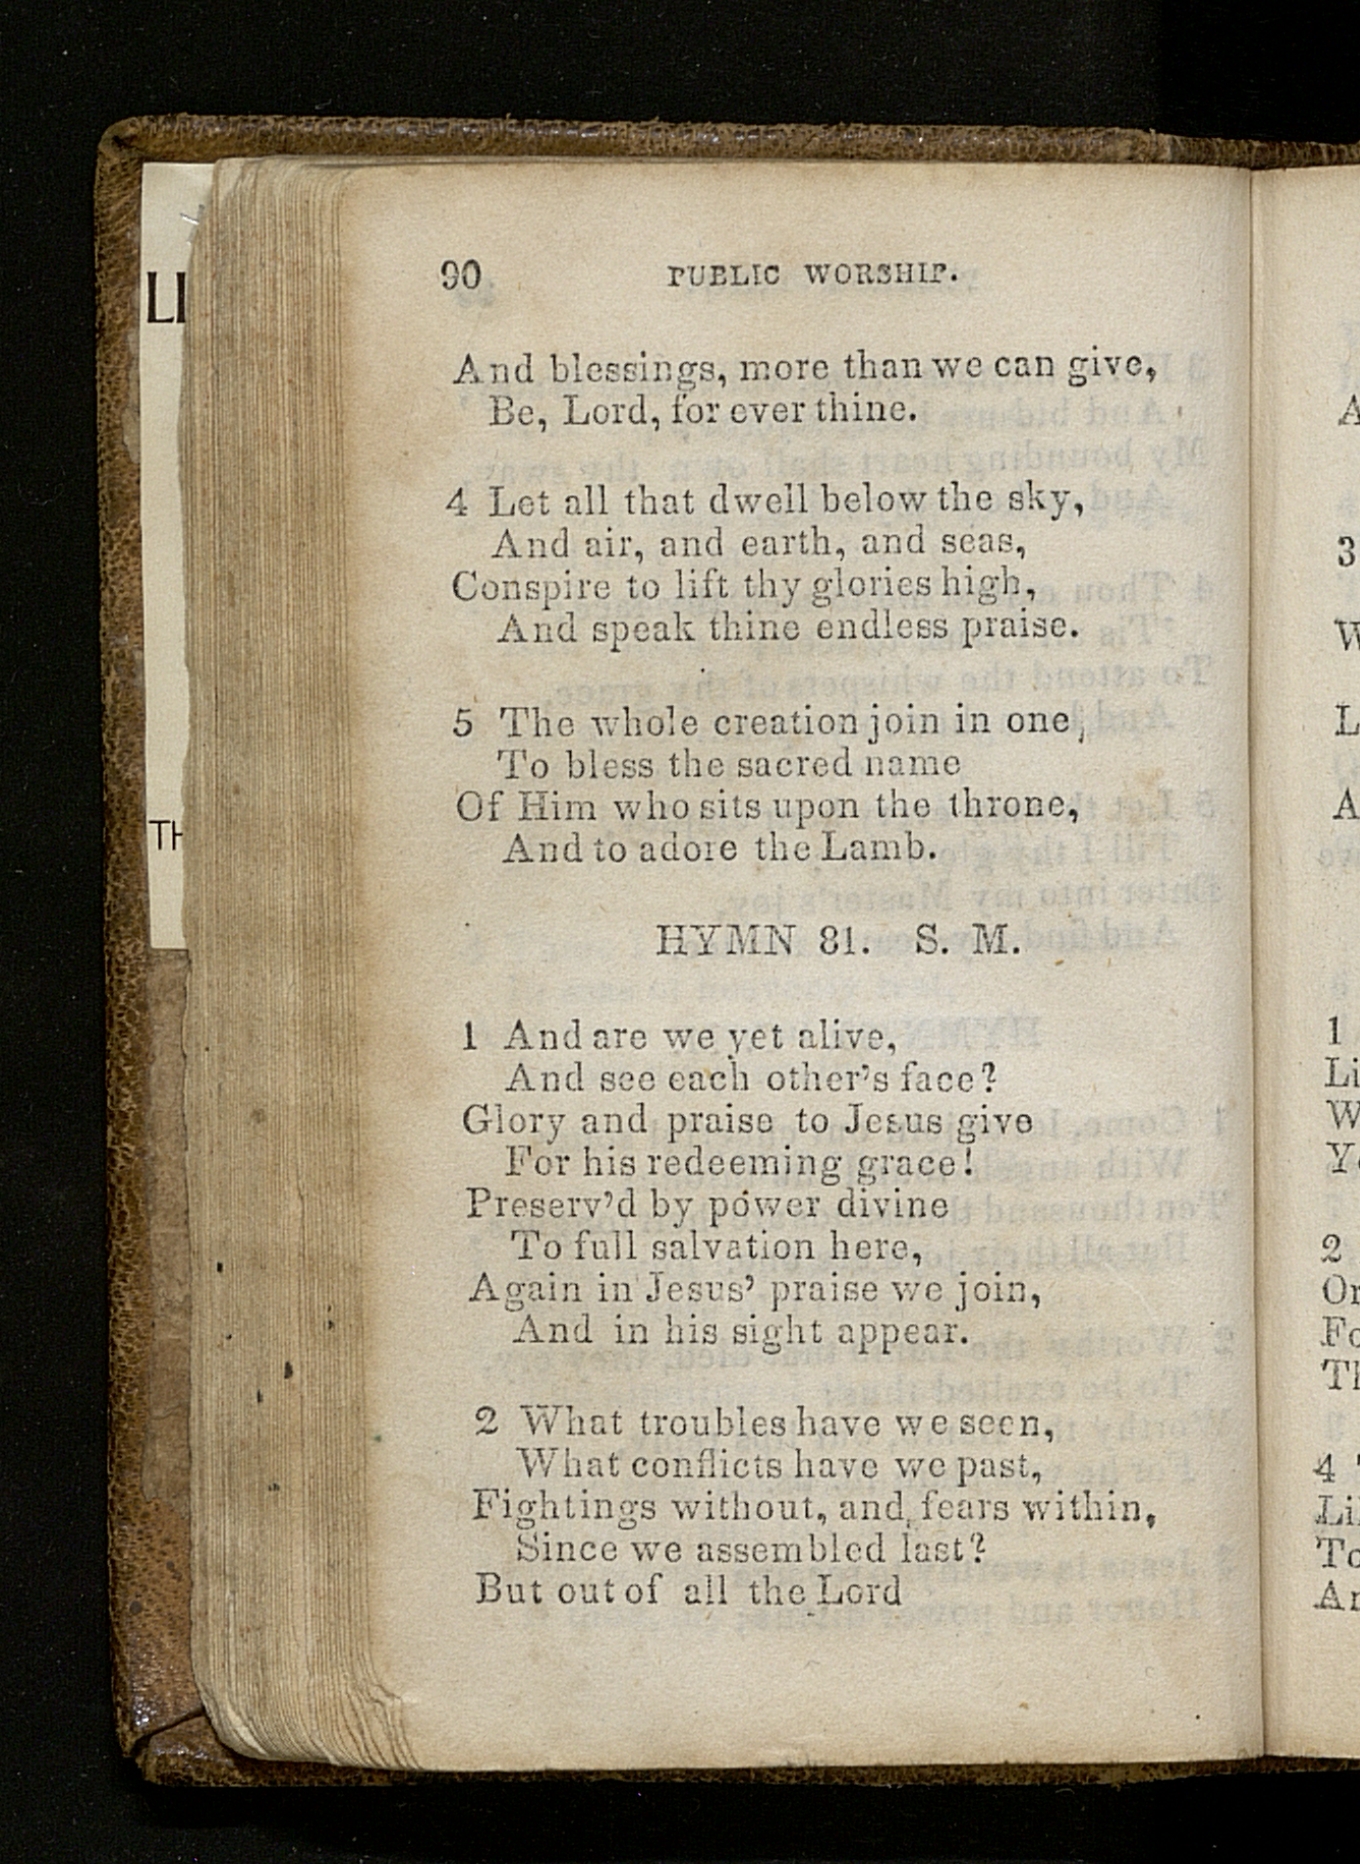 90 PUBLIC WORSHIP.
And blessings, more than we can give,
Be, Lord, for ever thine.
4 Let all that dwell below the sky,
And air, and earth, and seas,
Conspire to lift thy glories high,
And speak thine endless praise.
5 The whole creation join in one,
To bless the sacred name
Of Him who sits upon the throne,
And to adore the Lamb.
HYMN 81. S. M.
1 And are we yet alive,
And see each other's face?
Glory and praise to Jesus give
For his redeeming grace!
Preserv'd by power divine
To full salvation here,
Again in Jesus' praise we join,
And in his sight appear.
2 What troubles have we seen,
What conflicts have we past,
Fightings without, and fears within,
Since we assembled last?
But out of all the Lord